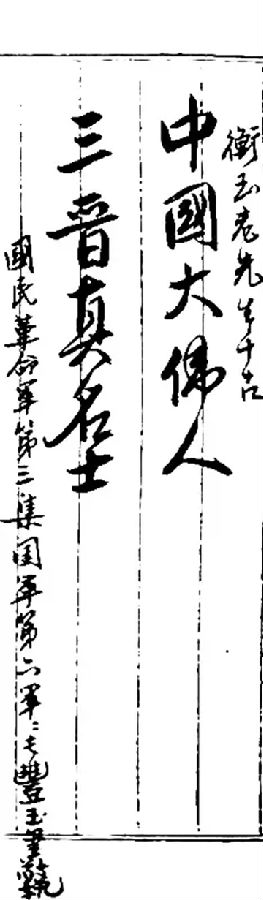 衡玉老先生千古
中國大偉人
三晋真名士
國民革命軍第三集团軍第六軍軍長豐玉璽輓